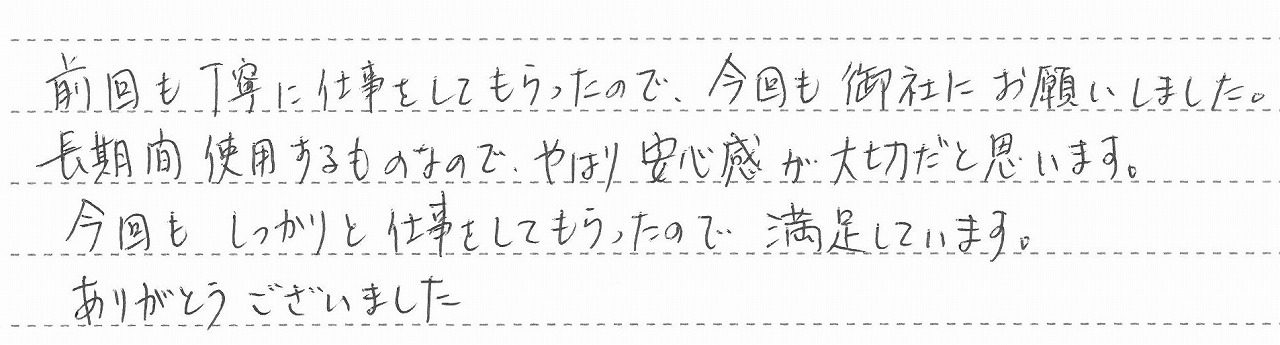 前回も丁寧に仕事をしてもらったので、今回も御社にお願いしました。
長期間使用するものなので、やはり安心感が大切だと思います。
今回もしっかりと仕事をしてもらったので満足しています。
ありがとうございました